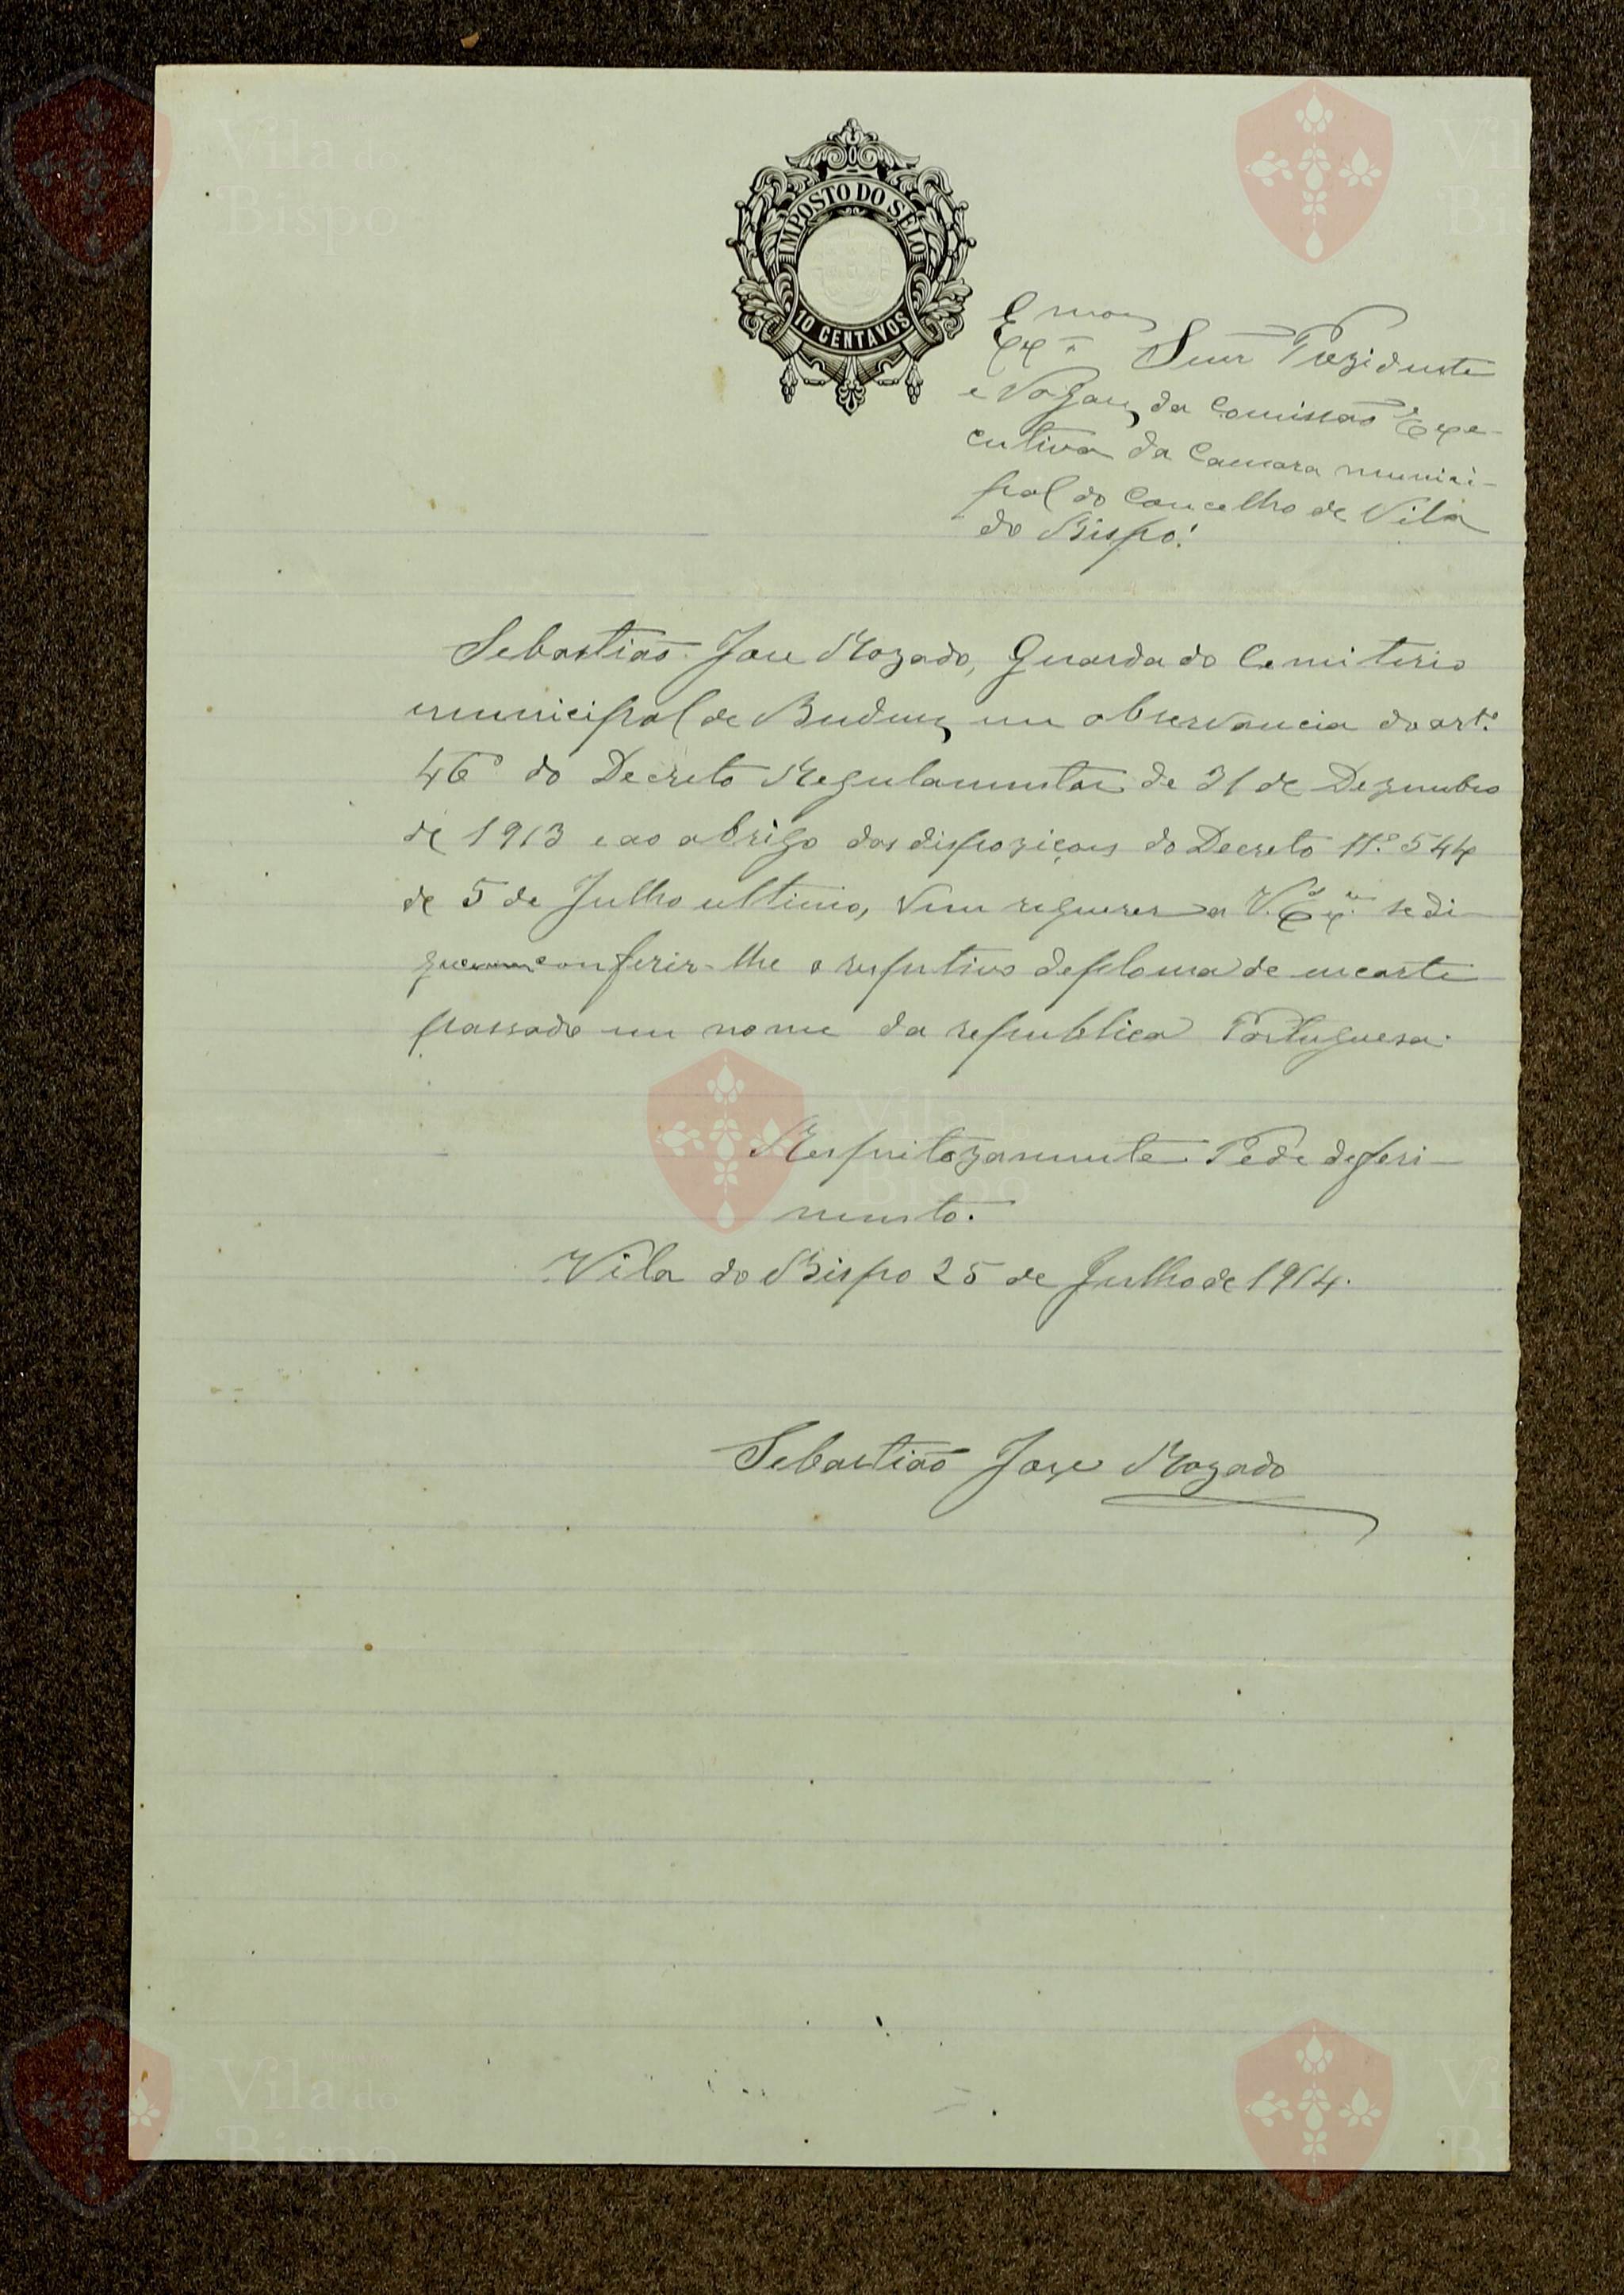 IMPOSTO DO SELO
10 CENTAVOS
Ex.mos Senr Prezidente
e Vogaes da Comissão Exe-
cutiva da Camara munici-
pal do Concelho de Vila
do Bispo!
Sebastião Jose Rozado, Guarda do Cemiterio
municipal de Budens em observancia do art.º
46º do Decreto Regulamentar de 31 de Dezembro
de 1913 e ao abrigo das dispoziçoes do Decreto N.º 544
de 5 de Julho ultimo, vem requerer a V. Ex.as se di-
guem conferir-lhe o respetivo deploma de encarte
passado em nome da republica Portuguesa.
Respeitozamente Pede deferi-
mento.
Vila do Bispo 25 de Julho de 1914.
Sebastião Joze Rozado
Vila do
Bispo